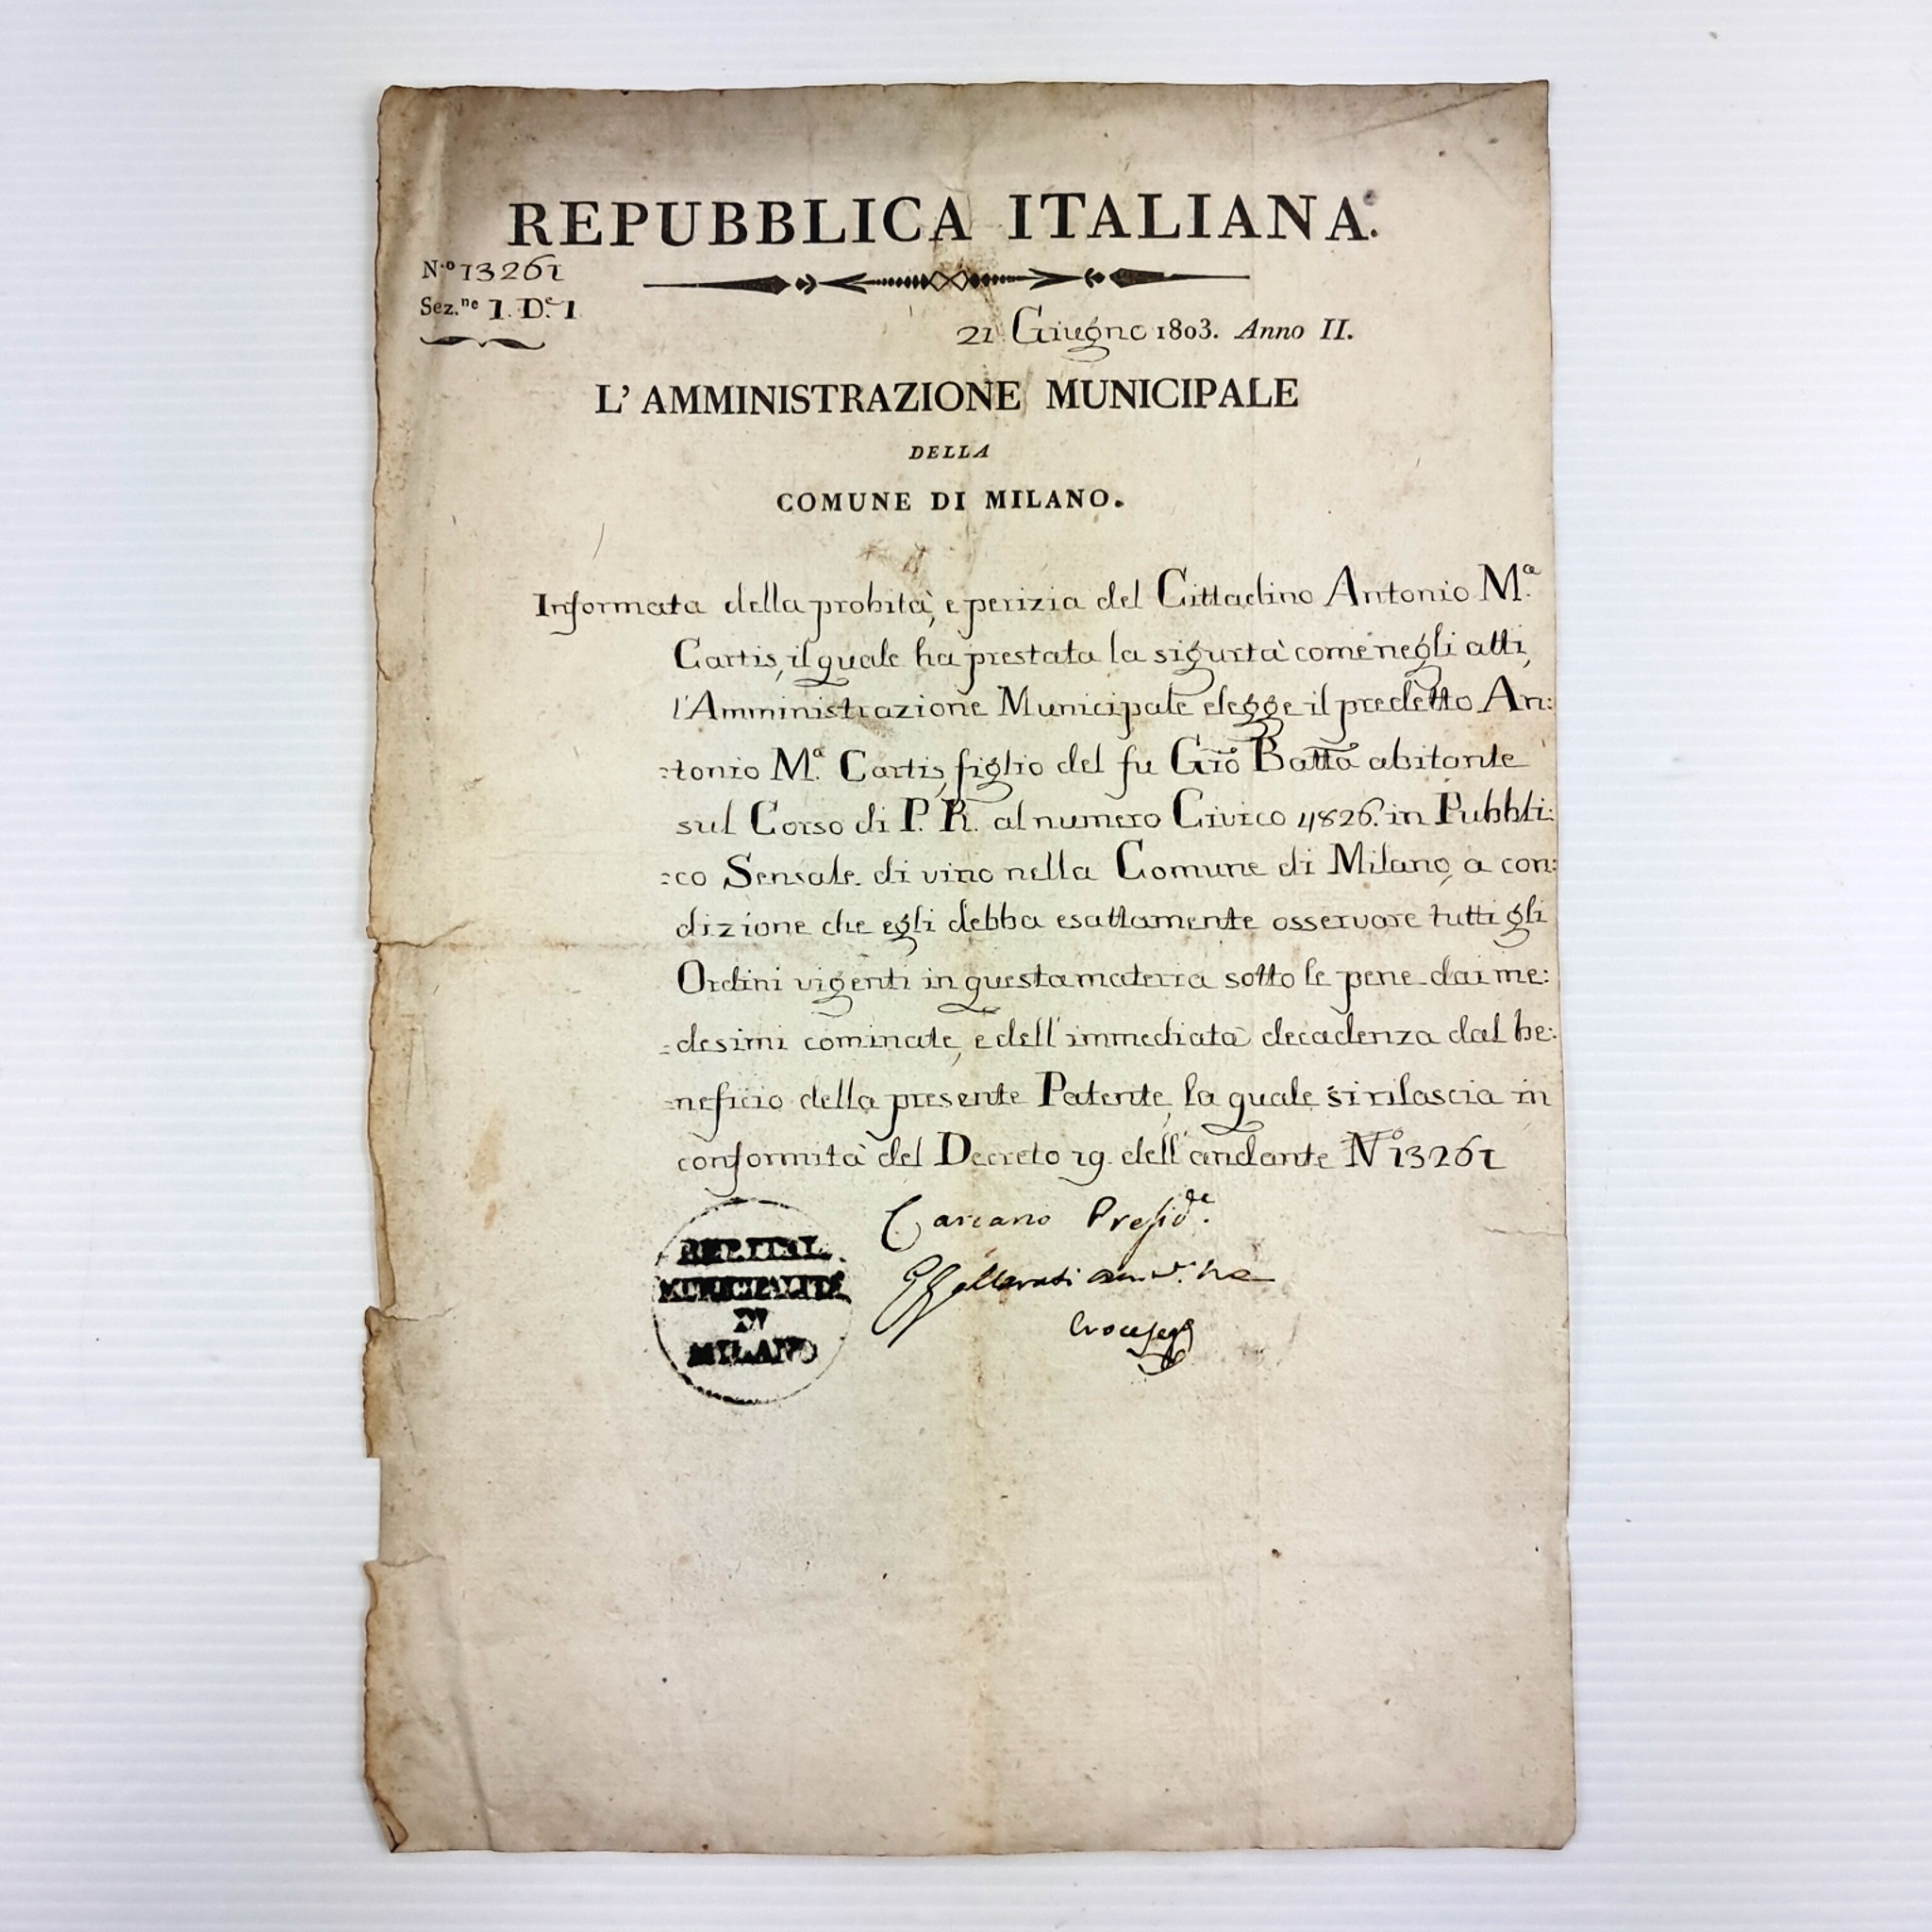 REPUBBLICA ITALIANA.
N.º 13261
Sez.ne 1. D.e 1
21 Giugno 1803. Anno II.
L' AMMINISTRAZIONE MUNICIPALE
DELLA
COMUNE DI MILANO.
Informata della probità, e perizia del Cittadino Antonio M.a
Cartis, il quale ha prestata la sigurtà come negli atti,
l'Amministrazione Municipale elegge il predetto An:
:tonio M.a Cartis, figlio del fu Gio Batta abitante
sul Corso di P. R. al numero Civico 4826. in Pubbli:
:co Sensale di vino nella Comune di Milano, a con:
dizione che egli debba esattamente osservare tutti gli
Ordini vigenti in questa materia sotto le pene dai me:
:desimi cominate, e dell'immediata decadenza dal be:
:neficio della presente Patente, la quale si rilascia in
conformità del Decreto 19. dell'andante Nº 13261
Carcano Presid.e
REP. ITAL.
MUNICIPALITÀ
DI
MILANO